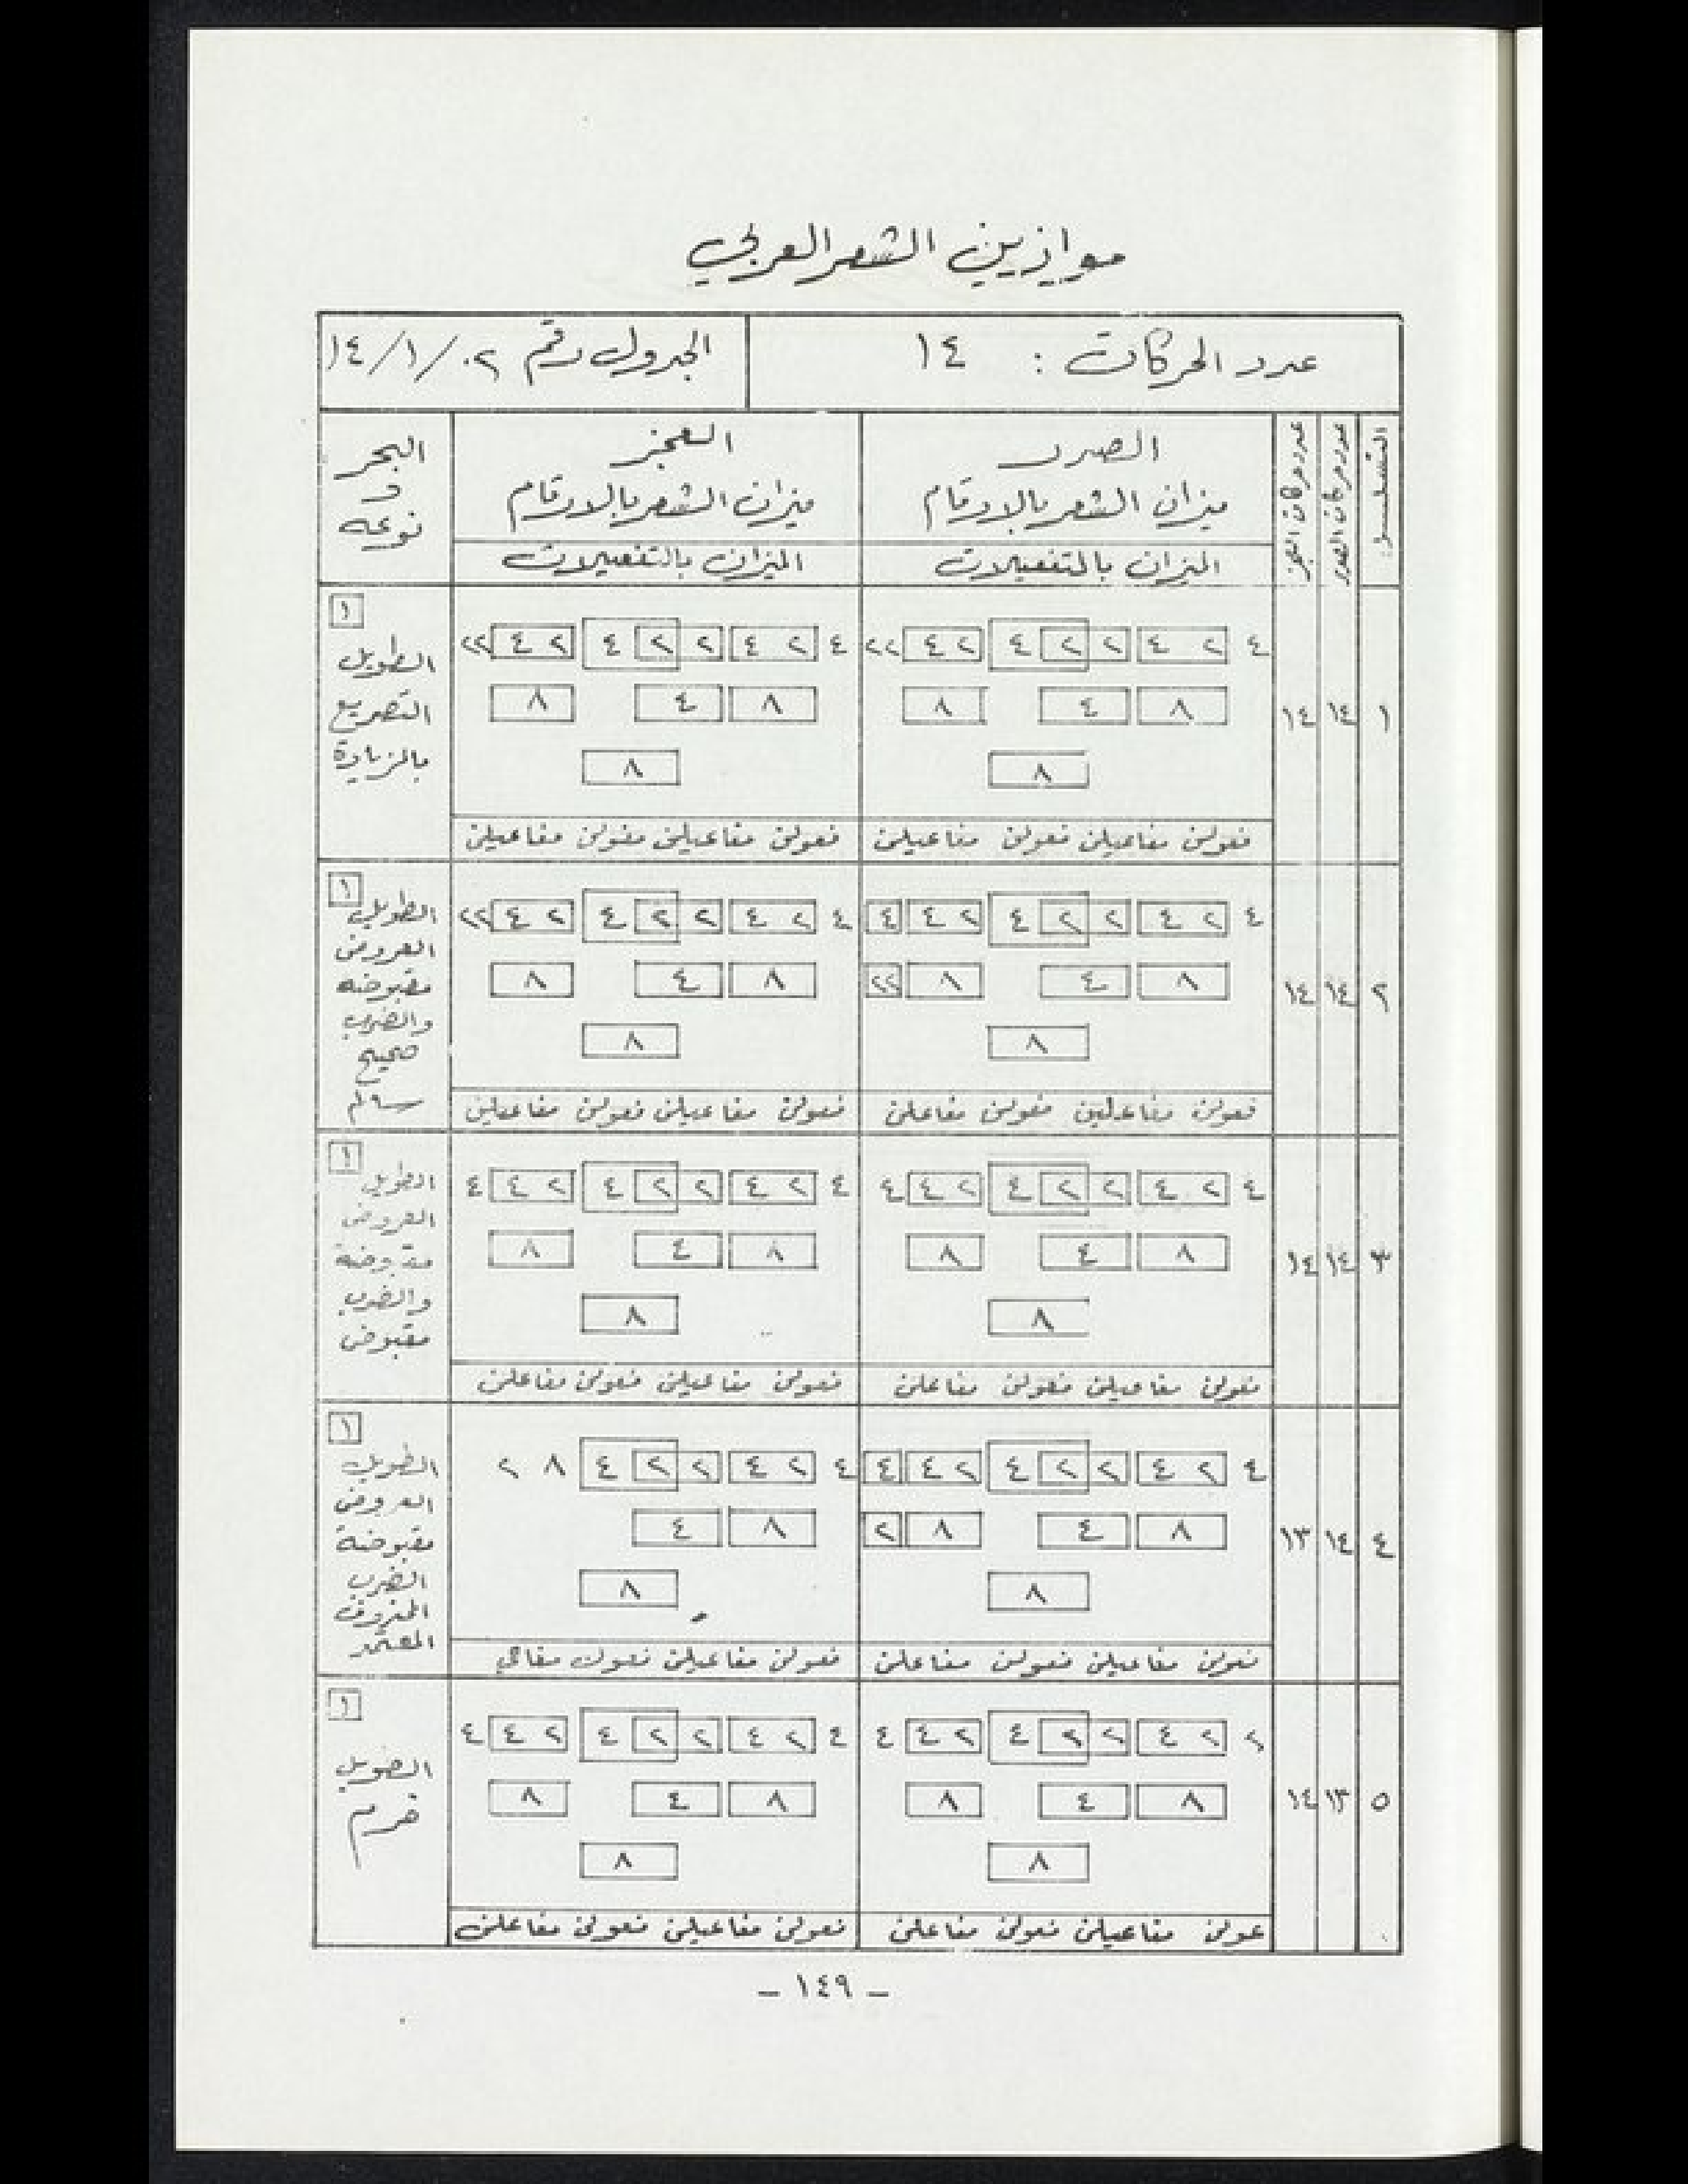 موازين الشعر العربي
عدد الحركات : ١٤
الجدول رقم ٠٢/١/١٤
التسلسل
عدد حركات الصدر
عدد حركات العجز
الصدر
ميزان الشعر بالارقام
الميزان بالتفعيلات
العجز
ميزان الشعر بالارقام
الميزان بالتفعيلات
البحر
و
نوعه
١
١٤
١٤
٤ ٢ ٤ ٢ ٢ ٤ ٢ ٤ ٢٢
٨ ٤ ٨
٨
فعولن مفاعيلن فعولن مفاعيلن
٤ ٢ ٤ ٢ ٢ ٤ ٢ ٤ ٢٢
٨ ٤ ٨
٨
فعولن مفاعيلن فعولن مفاعيلن
١
الطويل
التصريع
بالزيادة
٢
١٤
١٤
٤ ٢ ٤ ٢ ٢ ٤ ٢ ٤ ٤
٨ ٤ ٨ ٢٢
٨
فعولن مفاعيلن فعولن مفاعلن
٤ ٢ ٤ ٢ ٢ ٤ ٢ ٤ ٢٢
٨ ٤ ٨
٨
فعولن مفاعيلن فعولن مفاعيلن
١
الطويل
العروض
مقبوضه
والضرب
صحيح
سالم
٣
١٤
١٤
٤ ٢ ٤ ٢ ٢ ٤ ٢ ٤ ٤
٨ ٤ ٨
٨
فعولن مفاعيلن فعولن مفاعلن
٤ ٢ ٤ ٢ ٢ ٤ ٢ ٤ ٤
٨ ٤ ٨
٨
فعولن مفاعيلن فعولن مفاعلن
١
الطويل
العروض
مقبوضة
والضرب
مقبوض
٤
١٤
١٣
٤ ٢ ٤ ٢ ٢ ٤ ٢ ٤ ٤
٨ ٤ ٨ ٢
٨
فعولن مفاعيلن فعولن مفاعلن
٤ ٢ ٤ ٢ ٢ ٤ ٨ ٢
٨ ٤
٨
فعولن مفاعيلن فعول مفاعي
١
الطويل
العروض
مقبوضة
الضرب
المحذوف
المعتمد
٥
١٣
١٤
٢ ٢ ٤ ٢ ٢ ٤ ٢ ٤ ٤
٨ ٤ ٨
٨
عولن مفاعيلن فعولن مفاعلن
٤ ٢ ٤ ٢ ٢ ٤ ٢ ٤ ٤
٨ ٤ ٨
٨
فعولن مفاعيلن فعولن مفاعلن
١
الطويل
خرم
- ١٤٩ -